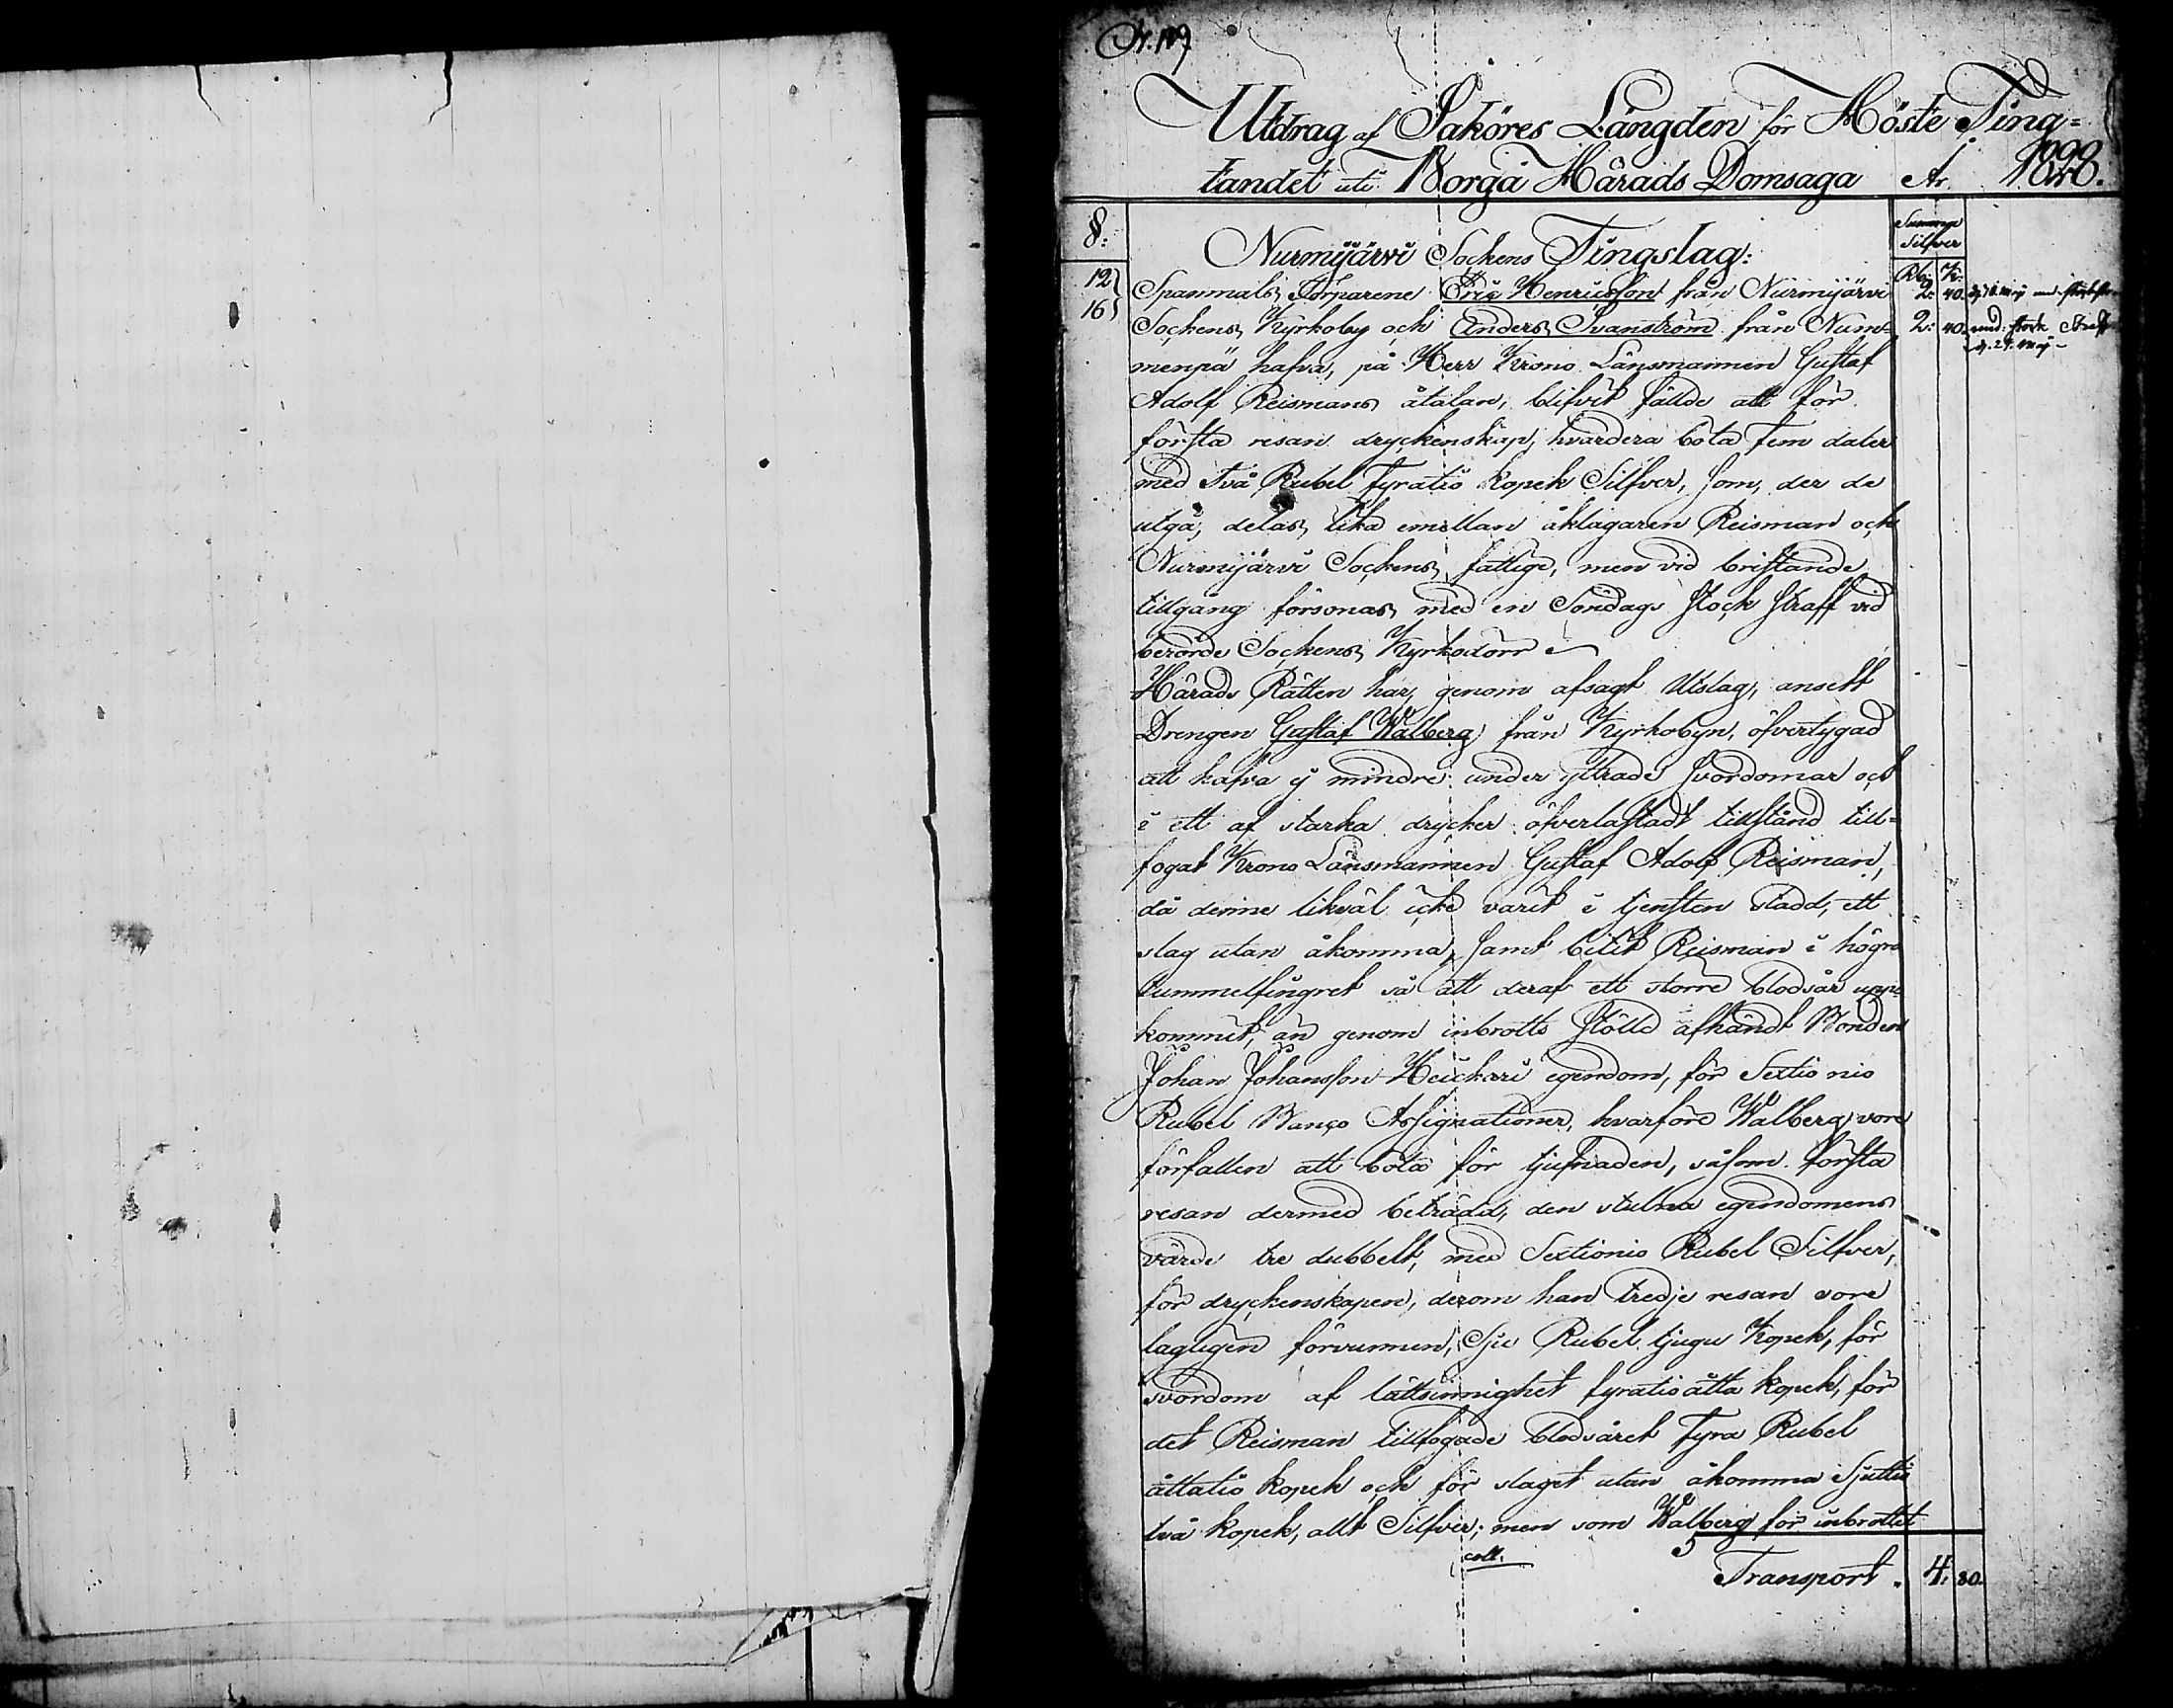 Utdrag af Saköres Längden för Höste Ting=
tandet uti Borgå Härads Domsaga År
§:
Nurmijärvi Sockens Tingslag:
Summa
Silfver
Rb: K:
12
16
2: 40.
Spanmåls Torparene Eric Henricsson från Nurmijärvi
Sockens Kyrkoby och Anders Svanström från Num= 2: 40.
menpä hafva, på Herr Krono Länsmannen Gustaf
Adolf Reismans åtalan, blifvit fällde att för
första resan dryckenskap, hvardera böta fem daler
med två Rubel fyratio kopek Silfver, som, der de
utgå, delas lika emellan åklagaren Reisman och
Nurmijärvi Sockens fattige, men vid bristande
tillgång försonas med en Söndags stock straff vid
berörde Sockens Kyrkodörr
Härads Rätten har, genom afsagt Utslag, ansett
Drengen Gustaf Walberg från Kyrkobyn, öfvertygad
att hafva ej mindre under yttrade svordomar och
i ett af starka drycker öfverlastadt tillstånd till=
fogat Krono Länsmannen Gustaf Adolf Reisman,
då denne likväl icke varit i tjensten stadd, ett
slag utan åkomma, samt bitit Reisman i högra
tummelfingret så att deraf ett större blodsår upp=
kommit, än genom inbrotts stöld afhändt Bonden
Johan Johansson Heickari egendom, för Sextio nio
Rubel Banco Assignationer, hvarföre Walberg vore
förfallen att böta för tjufnaden, såsom första
resan dermed beträdd, den stulna egendomens
värde tre dubbelt, med Sextionio Rubel Silfver,
för dryckenskapen, derom han tredje resan vore
lagligen förvunnen, Sju Rubel tjugu Kopek, för
svordom af lättsinnighet fyratioåtta kopek, för
det Reisman tillfogade blodsåret Fyra Rubel
åttatio kopek och för slaget utan åkomma Sjuttio
två kopek, allt Silfver; men som Walberg för inbrottet
coll.
Transport. 4: 80.